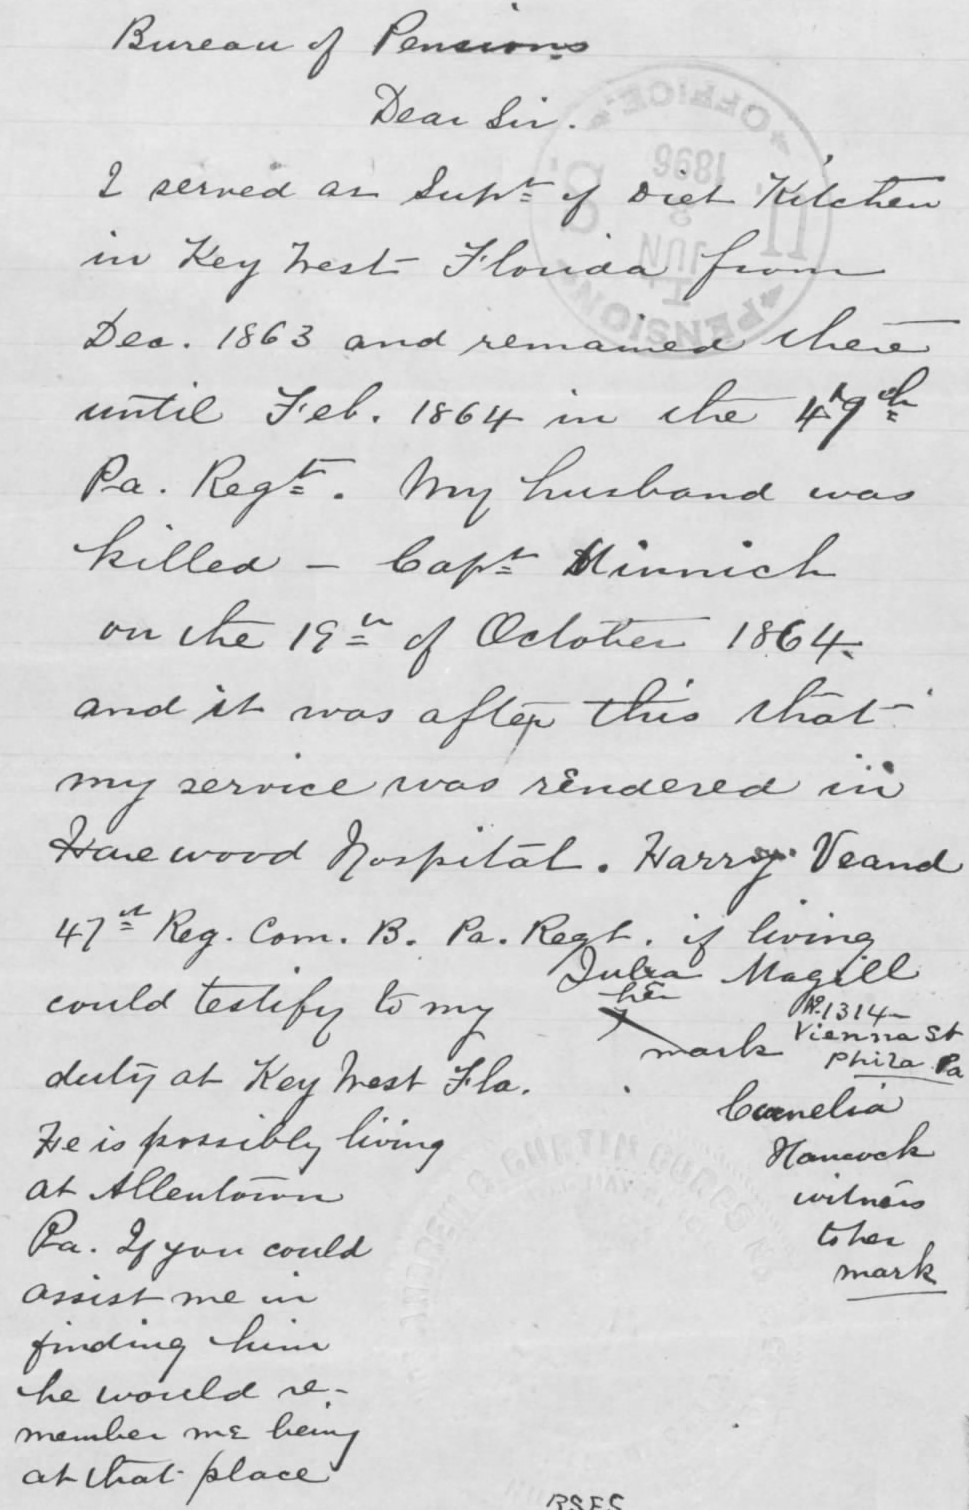 Bureau of Pensions
Dear Sir.
I served as Supt of Diet Kitchen
in Key West Florida from
Dec. 1863 and remained there
until Feb. 1864 in the 47th
Pa. Regt. My husband was
killed – Capt Minnich
on the 19th of October 1864.
and it was after this that
my service was rendered in
Harewood Hospital. Harry Veand
47th Reg. Com. B. Pa. Regt. if living
could testify to my
duty at Key West Fla.
He is possibly living
at Allentown
Pa. If you could
assist me in
finding him
he would re-
member me being
at that place
Julia Magill
her
X
mark
No. 1314
Vienna St
Phila Pa
Cornelia
Hancock
witness
to her
mark
PENSION OFFICE
U.S.
JUN
1898